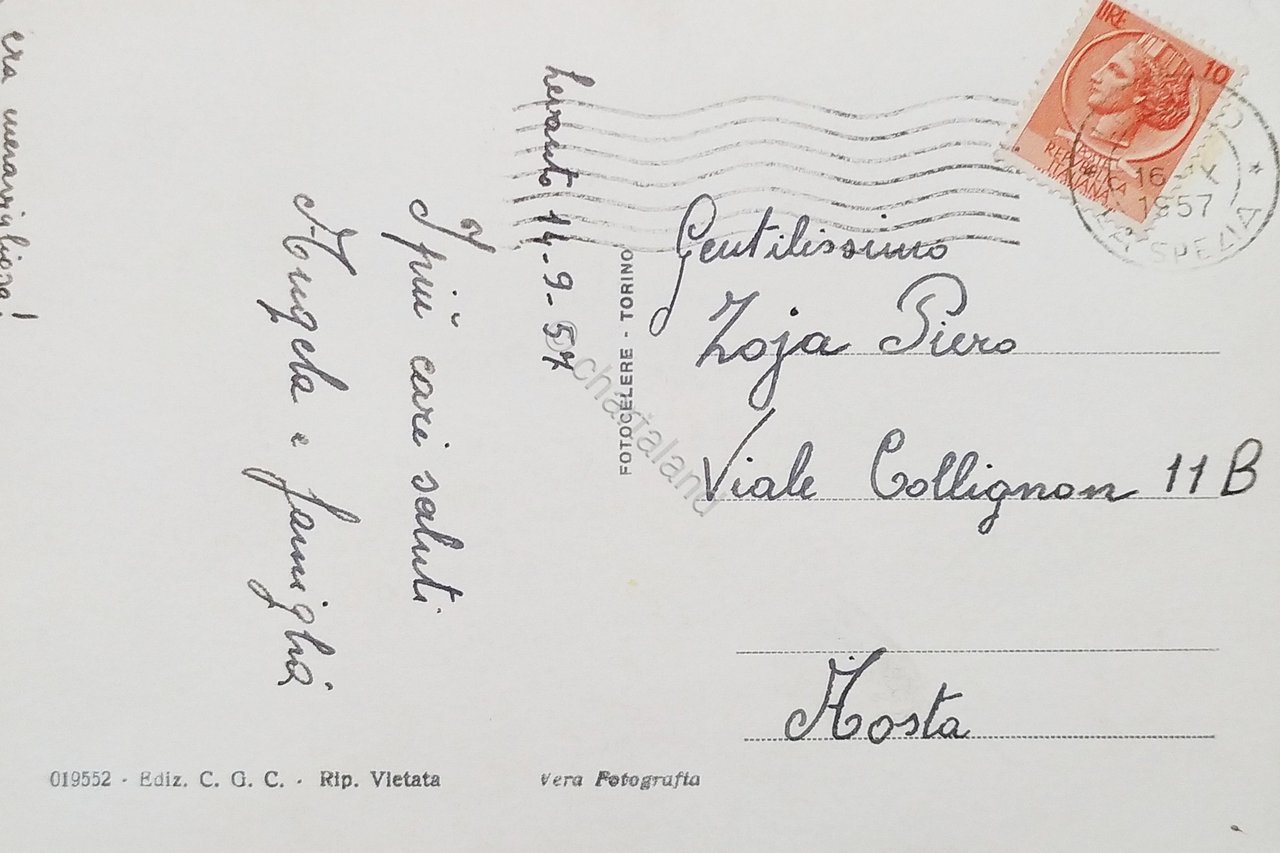 era meravigliosa!
Levanto 14-9-57
I più cari saluti
Angela e famiglia
FOTOCELERE - TORINO
LIRE 10
REPUBBLICA
ITALIANA
16 IX
1957
LA SPEZIA
Gentilissimo
Zoja Piero
Viale Collignon 11 B
Aosta
019552 - Ediz. C. G. C. - Rip. Vietata
Vera Fotografia
© chartaland